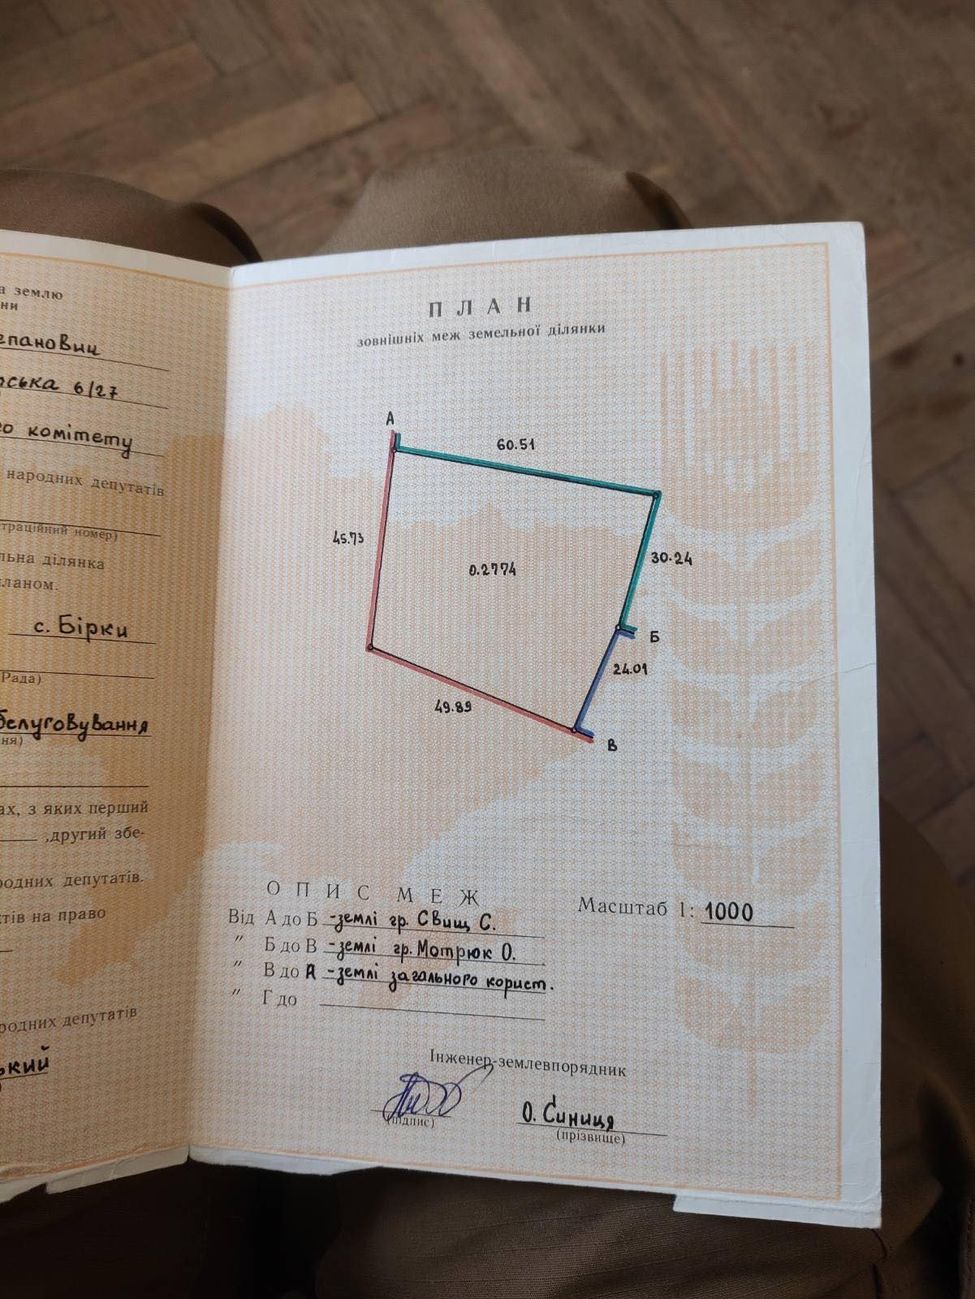 а землю
ни
епанович
рська 6/27
о комітету
народних депутатів
траційний номер)
льна ділянка
ланом.
с. Бірки
Рада)
бслуговування
ня)
ах, з яких перший
, другий збе-
родних депутатів.
тів на право
родних депутатів
ький
ПЛАН
зовнішніх меж земельної ділянки
А
60.51
45.73
0.2774
30.24
Б
24.01
49.89
В
ОПИС МЕЖ
Масштаб 1: 1000
Від А до Б -землі гр. Свищ С.
" Б до В -землі гр. Мотрюк О.
" В до А -землі загального корист.
" Г до
Інженер-землевпорядник
О. Синиця
(підпис)
(прізвище)